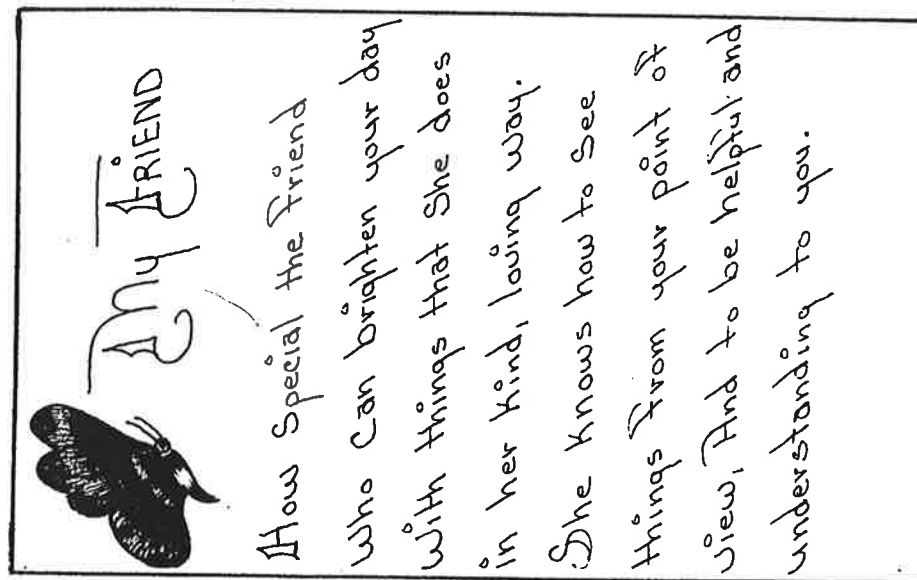 My FRIEND
How Special the Friend
Who Can brighten your day
With things that She does
in her Kind, loving way.
She Knows how to See
things From your point of
view, And to be helpful and
understanding to you.